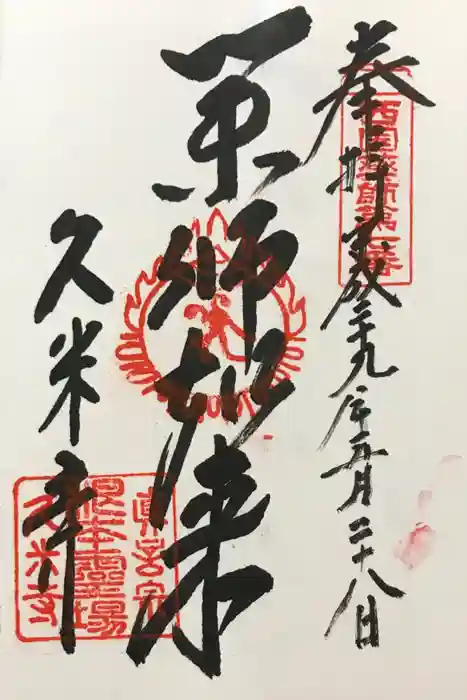 奉拝 平成二十九年五月二十八日
西国薬師第七番
薬師如来
久米寺
真言宗
根本霊場
久米寺